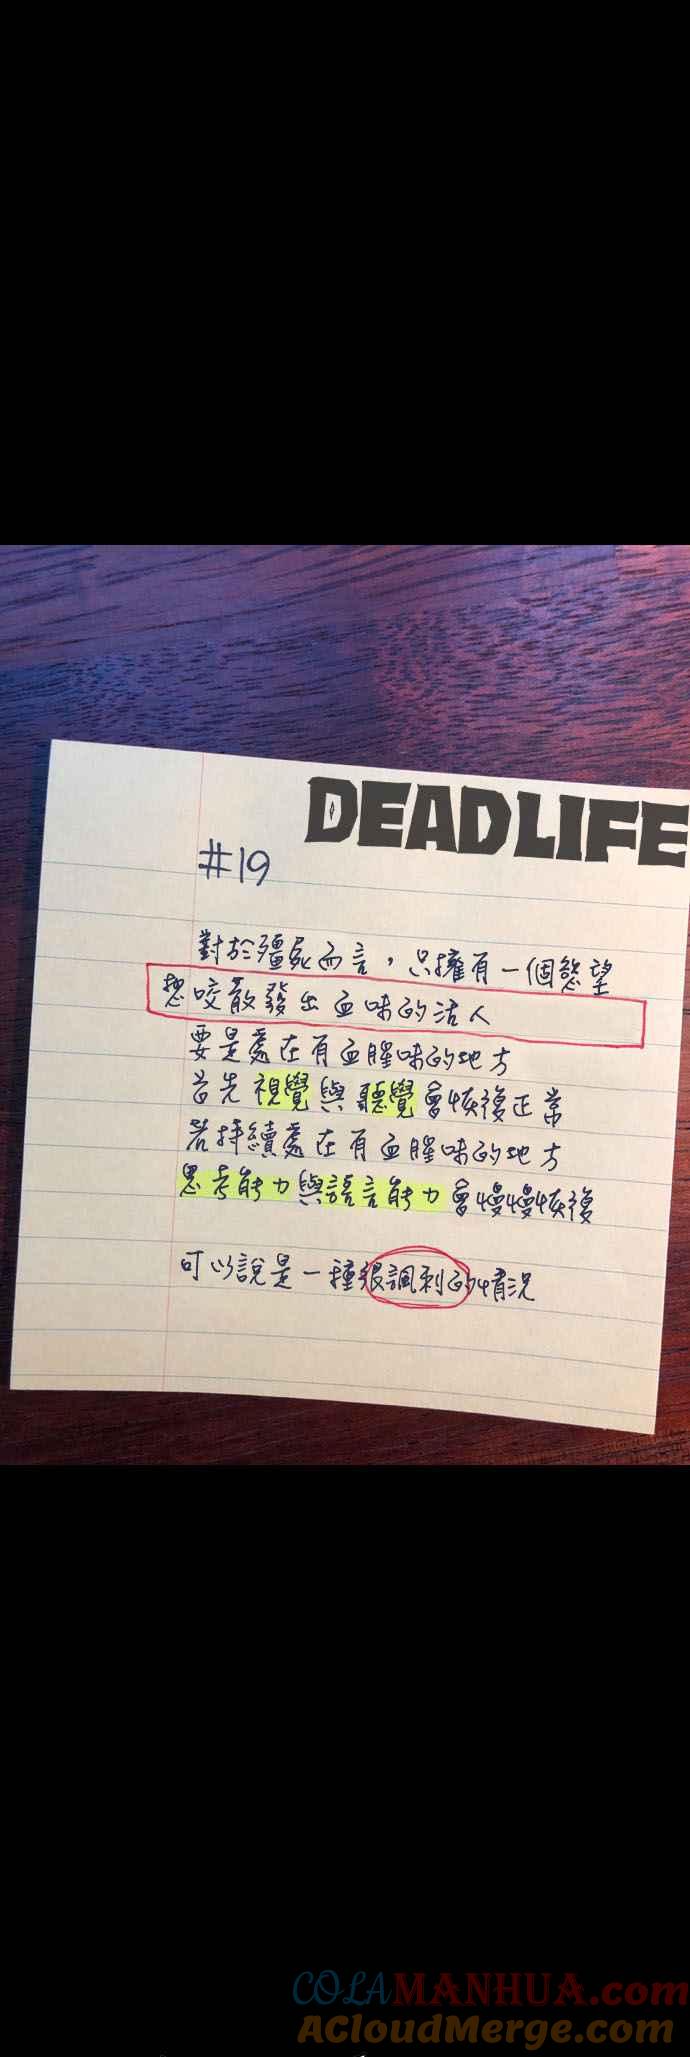 DEADLIFE
#19
對於殭屍而言，只擁有一個慾望
想咬散發出血味的活人
要是處在有血腥味的地方
首先視覺與聽覺會恢復正常
若持續處在有血腥味的地方
思考能力與語言能力會慢慢恢復
可以說是一種很諷刺的情況
COLAMANHUA.com
ACloudMerge.com